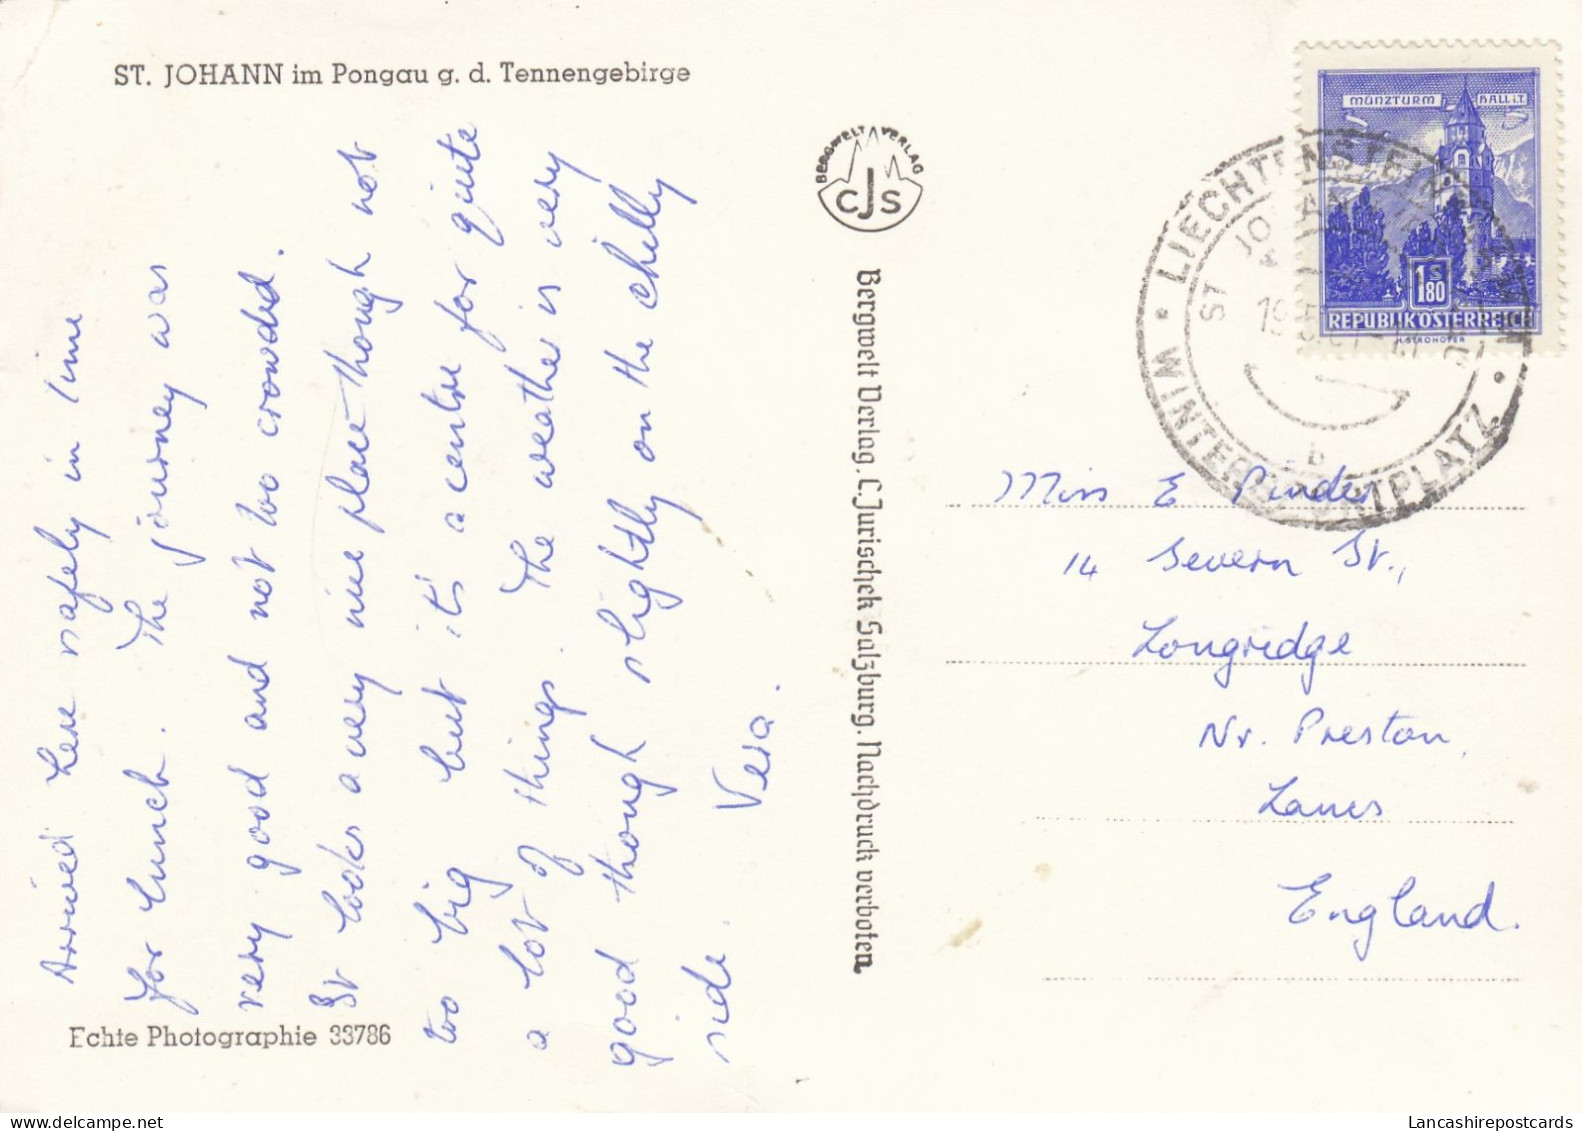 ST. JOHANN im Pongau g. d. Tennengebirge
Arrived here safely in time
for lunch. The journey was
very good and not too crowded.
It looks a very nice place though not
too big but it's a centre for quite
a lot of things. The weather is very
good though slightly on the chilly
side. Vera.
Echte Photographie 33786
BERGWELT VERLAG
CJS
Bergwelt Verlag, C. Jurischek Salzburg. Nachdruck verboten
MÜNZTURM HALL i.T.
1 S 80
REPUBLIK ÖSTERREICH
H. STROHOFER
LIECHTENSTEIN
WINTERSPORTPLATZ
ST JOHANN
b
Miss E Pinder
14 Severn St.,
Longridge
Nr. Preston,
Lancs
England.
Lancashirepostcards